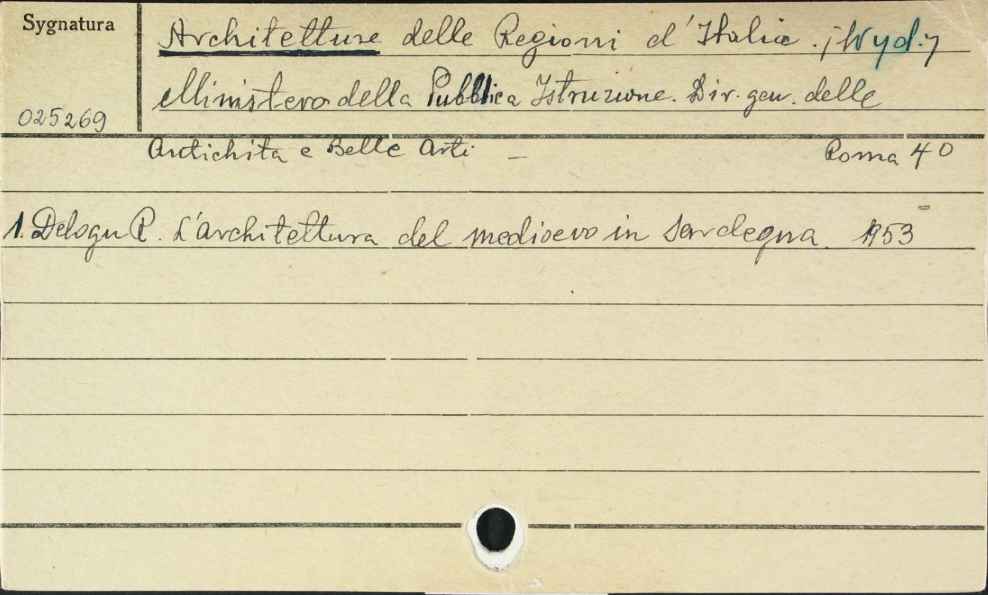 Sygnatura
Architetture delle Regioni d'Italia. /Wyd./
Ministero della Pubblica Istruzione. Dir. gen. delle
025269
Antichita e Belle Arti — Roma 4°
1. Delogu R. L'architettura del medioevo in Sardegna. 1953